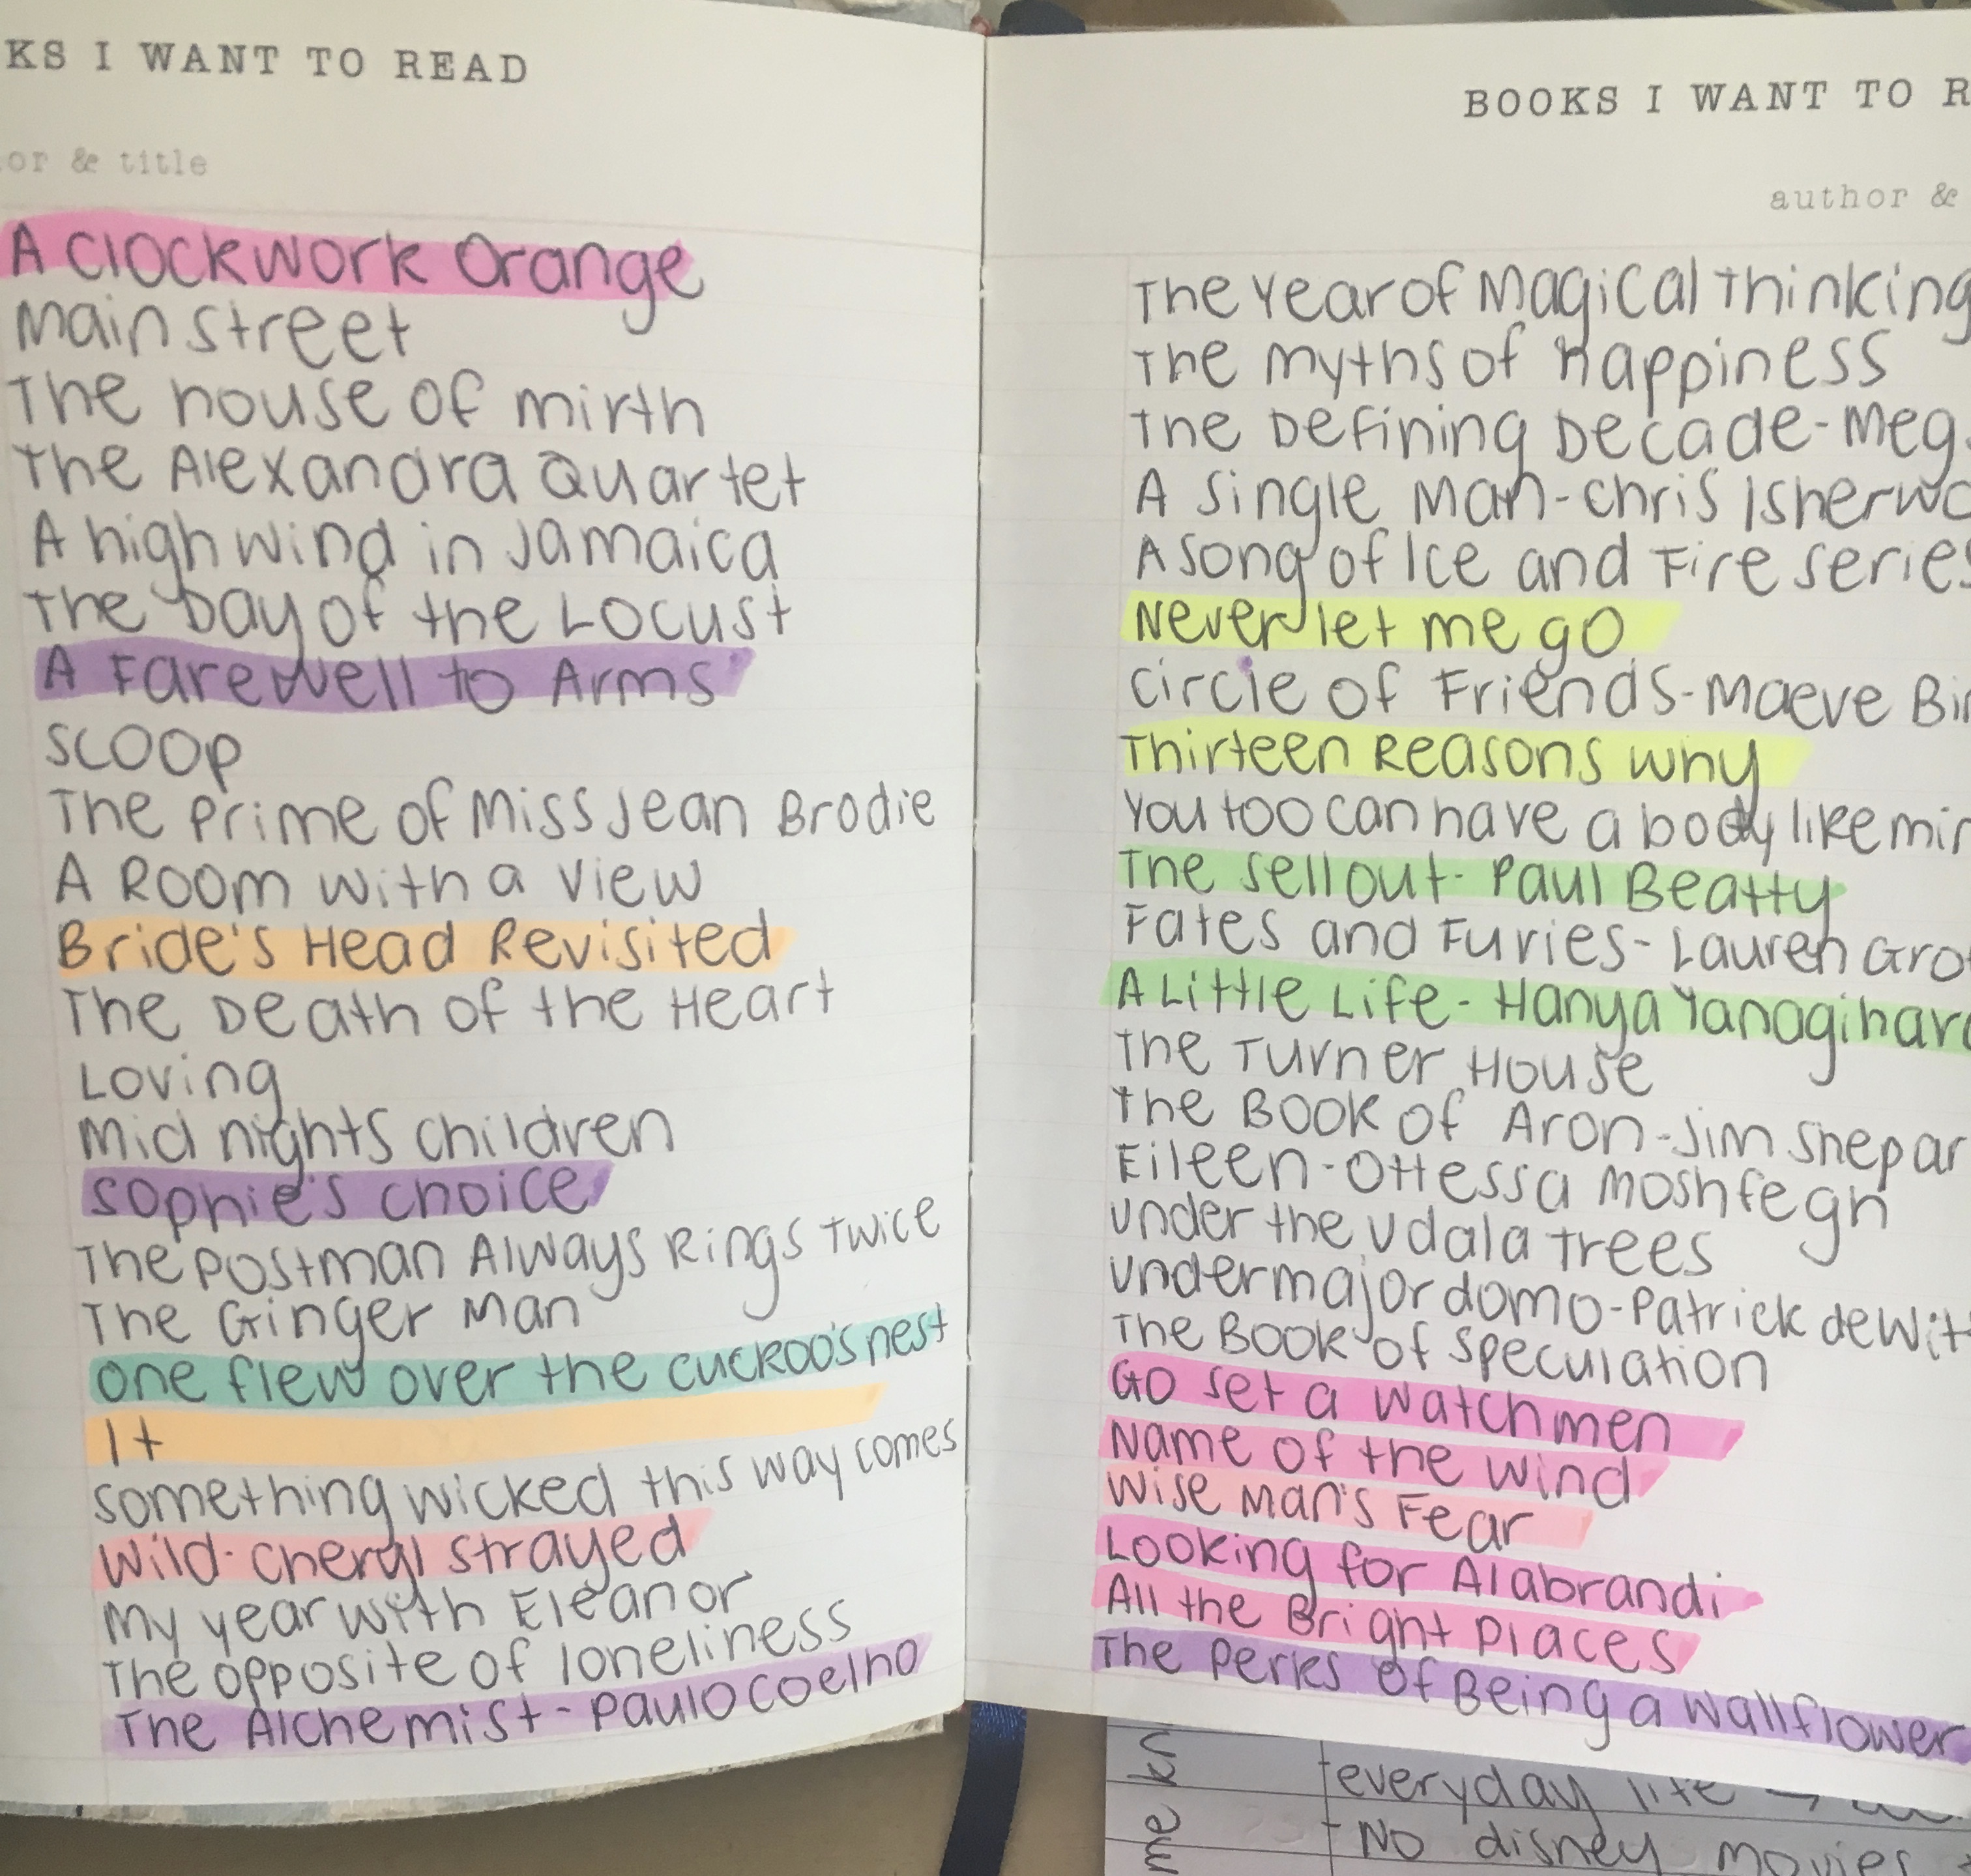 KS I WANT TO READ
or & title
A Clockwork Orange
Main street
The house of mirth
The Alexandra Quartet
A high wind in Jamaica
The Day of the Locust
A Farewell to Arms
Scoop
The Prime of Miss Jean Brodie
A Room with a view
Bride's Head Revisited
The Death of the Heart
Loving
Midnights children
Sophie's choice
The Postman Always Rings Twice
The Ginger Man
one flew over the cuckoo's nest
It
something wicked this way comes
Wild - cheryl strayed
My year with Eleanor
The opposite of loneliness
The Alchemist - Paulo Coelho
BOOKS I WANT TO R
author &
The Year of Magical Thinking
The myths of happiness
The Defining Decade - Meg
A single Man - Chris Isherwo
A Song of Ice and Fire series
Never let me go
Circle of Friends - Maeve Bin
Thirteen Reasons why
You too can have a body like min
The sellout - Paul Beatty
Fates and Furies - Lauren Gro
A Little Life - Hanya Yanagihara
The Turner House
The Book of Aron - Jim Shepar
Eileen - Ottessa Moshfegh
under the udala trees
undermajordomo - Patrick dewitt
The Book of speculation
Go set a watchmen
Name of the wind
Wise man's Fear
Looking for Alabrandi
All the Bright Places
The Perks of Being a wallflower
me kn
everyday life
- No disney movies